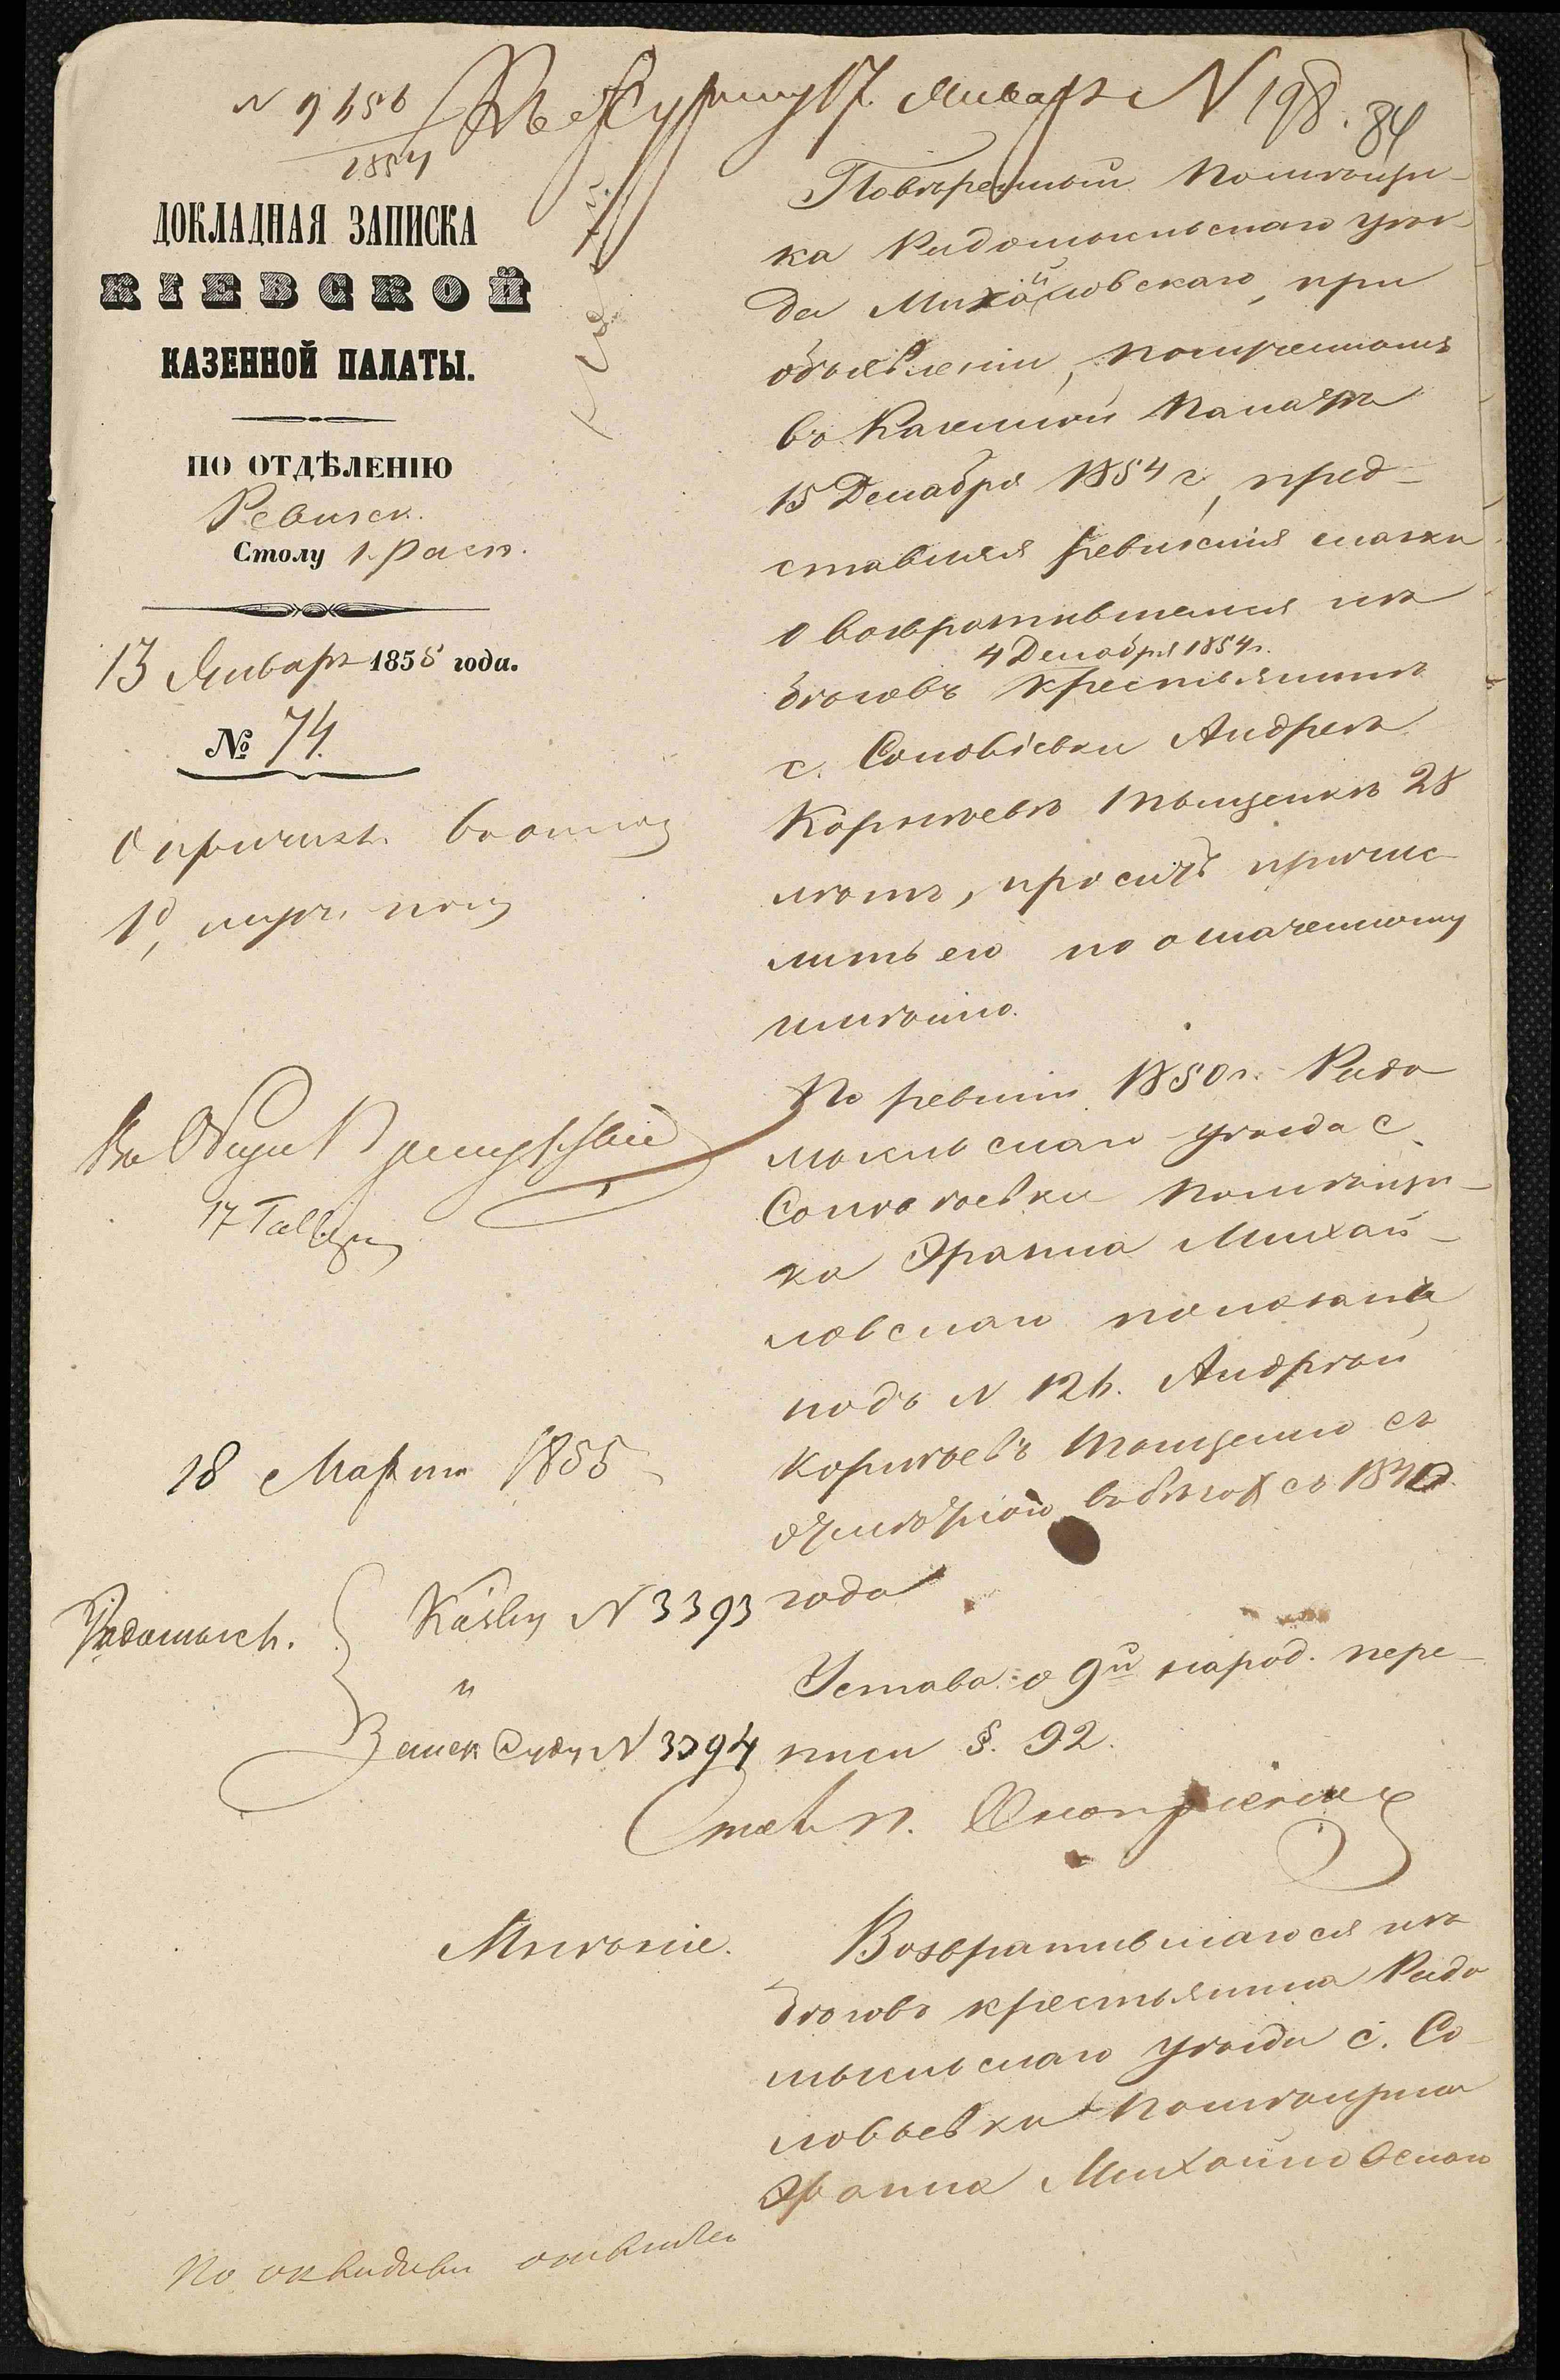 N 9656
1854
Къ Журналу 17. Января N 198.
84
ДОКЛАДНАЯ ЗАПИСКА
КІЕВСКОЙ
КАЗЕННОЙ ПАЛАТЫ.
ПО ОТДѢЛЕНІЮ
Ревизск.
Столу 1. расп.
13 Января 1855 года.
№ 74.
О причисл.
17 Января
18 Марта 1855
Радомысл.
Казнч N 3393
и
Земск Суду N 3394
Мнѣніе.
Повѣренный Помѣщи-
ка Радомысльскаго уѣз-
да Михайловскаго, при
объявленіи, полученномъ
въ Казенной Палатѣ
15 Декабря 1854 г., пред-
ставляя ревизскія сказки
о возвратившемся изъ
4 Декабря 1854г.
бѣговъ крестьянинѣ
с. Соловіевки Андреѣ
Корнѣевѣ Тыщенкѣ 28
лѣтъ, проситъ причис-
лить его по означенному
имѣнію.
По ревизіи 1850 г. Радо
мысльскаго уѣзда с.
Соловьевки Помѣщи-
ка Франца Михай-
ловскаго показанъ
подъ N 126. Андрѣй
Корнѣевъ Тыщенко съ
отмѣткой въ бѣгах съ 1840
года
Устава о 9й народ. пере-
писи §. 92.
Возвратившагося изъ
бѣговъ крестьянина Радо
мысльскаго уѣзда с. Со-
ловьевки Помѣщика
Франца Михайловскаго